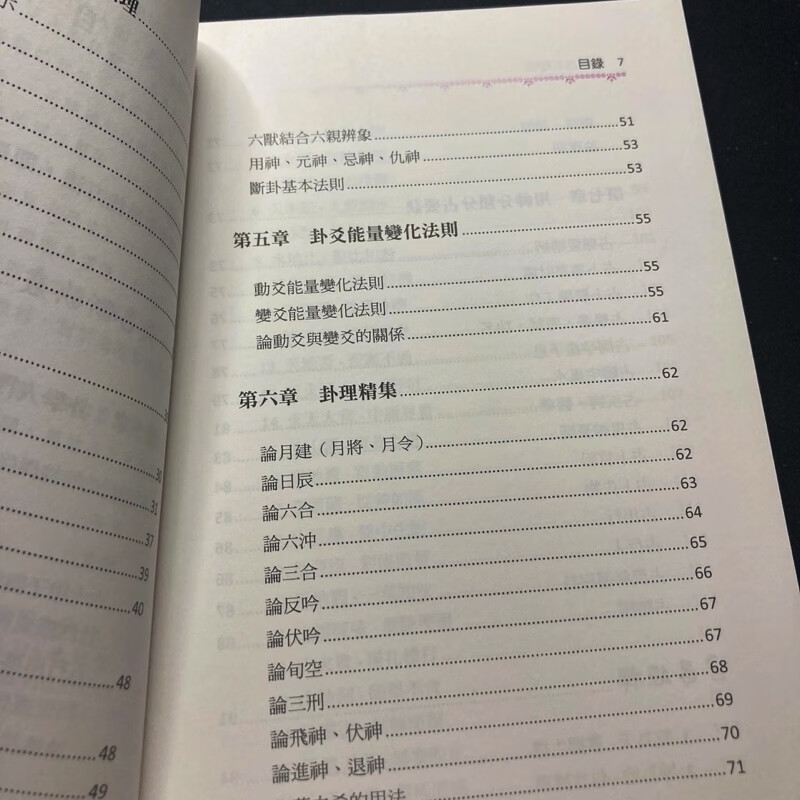 理
示
30
31
37
39
40
48
48
49
目錄 7
六獸結合六親辨象 51
用神、元神、忌神、仇神 53
斷卦基本法則 53
第五章 卦爻能量變化法則 55
動爻能量變化法則 55
變爻能量變化法則 55
論動爻與變爻的關係 61
第六章 卦理精集 62
論月建（月將、月令） 62
論日辰 62
論六合 63
論六沖 64
論三合 65
論反吟 66
論伏吟 67
論旬空 67
論三刑 68
論飛神、伏神 69
論進神、退神 70
的用法 71